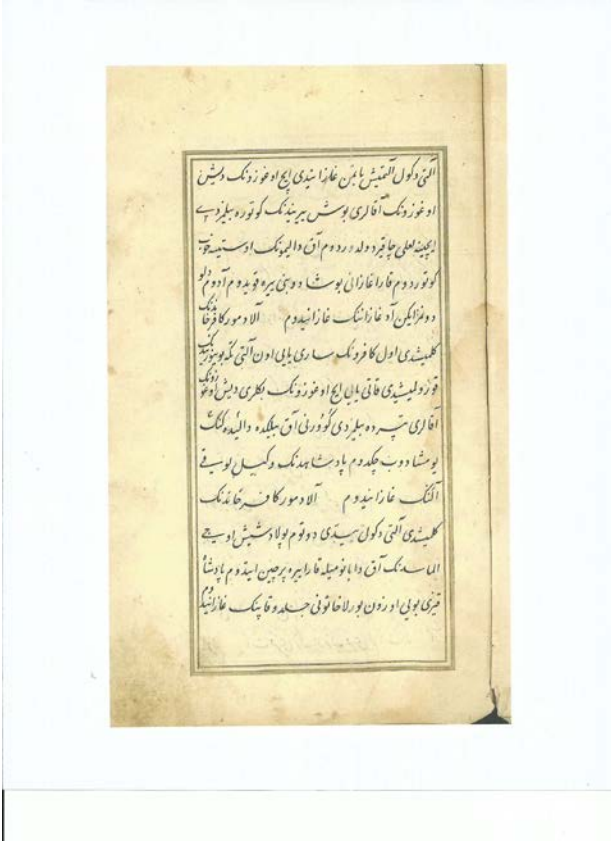 آلتی دکول آلتمیش باتمن غازاندی ایچ اوغوزونک دیش
اوغوزونک آقالری بوش یرندنک کوتوره بیلمزدی
ایچینه لعلی چاقیر دولدوردوم آق دالیمونک اوستینه
کوتوردوم قارا غازانی بوشادوبنی یره قویدوم آدوم دلو
دونمز ایکن آد غازاننک غازانیدوم آلا دمور کافر خاندنک
کلمیشدی اول کافرونک ساری یایی اون آلتی تکه بوینوزیندنک
قوزولمیشدی قاتی یایی ایچ اوغوزونک بکلری دیش اوغوزونک
آقالری تپرده بیلمزدی کوورنی آق بیلکده والیده لنک
یومشادوب چکدوم پادشاهدنک وکیل لوسیقی
آلنک غازانیدوم آلا دمور کافر خاندنک
کلمیشدی آلتی دکول یدی دوتوم پولاد شیش اوجی
الماسدنک آق دابانومیله قارا یره پرچین ایتدوم پادشاه
قیزی بویی اوزون بورلا خاتونی جلدو قاپنک غازانیدوم